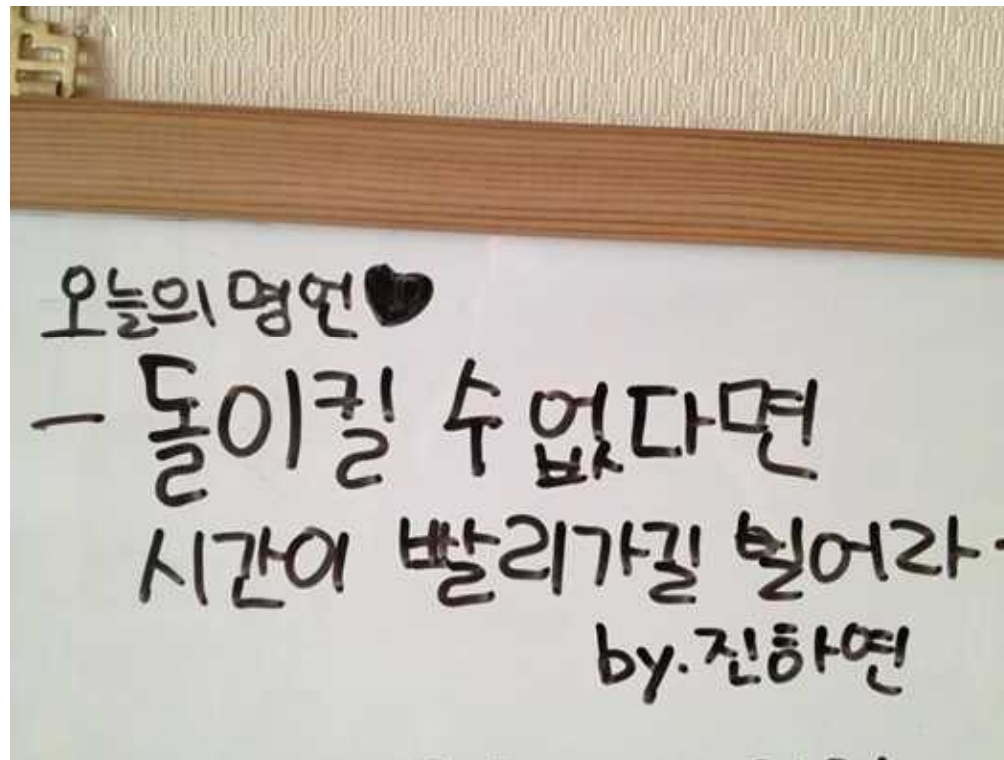 오늘의 명언♥
- 돌이킬 수 없다면
시간이 빨리가길 빌어라-
by.진하연